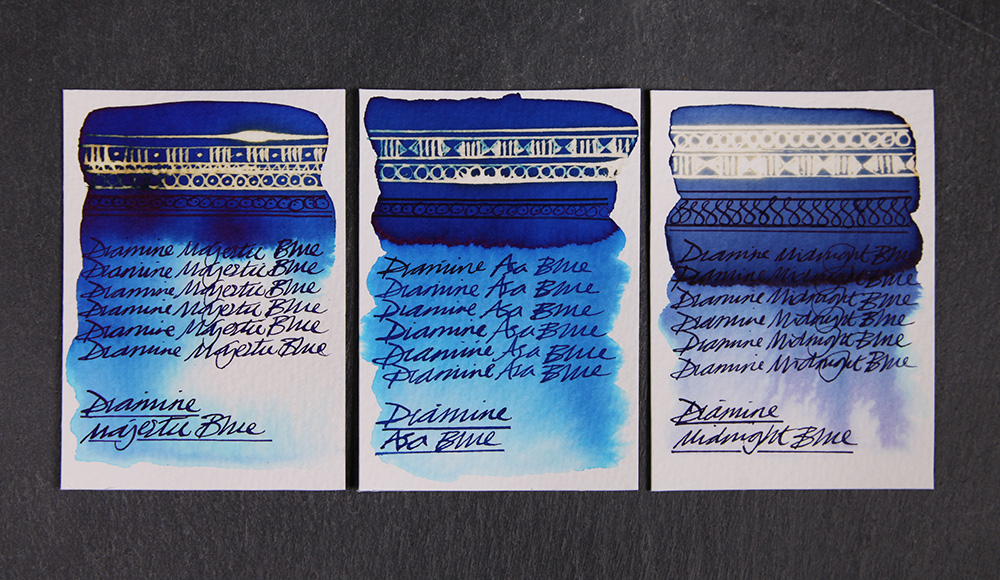 Diamine Majestic Blue
Diamine Majestic Blue
Diamine Majestic Blue
Diamine Majestic Blue
Diamine Majestic Blue
Diamine Majestic Blue
Diamine
Majestic Blue
Diamine Asa Blue
Diamine Asa Blue
Diamine Asa Blue
Diamine Asa Blue
Diamine Asa Blue
Diamine Asa Blue
Diamine
Asa Blue
Diamine Midnight Blue
Diamine Midnight Blue
Diamine Midnight Blue
Diamine Midnight Blue
Diamine Midnight Blue
Diamine Midnight Blue
Diamine
Midnight Blue